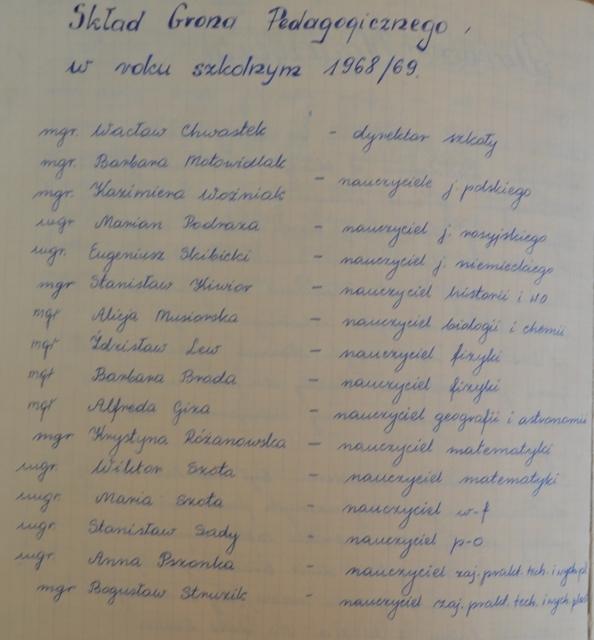 Skład Grona Pedagogicznego,
w roku szkolnym 1968/69.
mgr. Wacław Chwastek - dyrektor szkoły
mgr. Barbara Motowidlak
mgr. Kazimiera Woźniak - nauczyciele j. polskiego
mgr Marian Podraza - nauczyciel j. rosyjskiego
mgr. Eugeniusz Skibicki - nauczyciel j. niemieckiego
mgr Stanisław Kiwior - nauczyciel historii i WO
mgr Alicja Musiorska - nauczyciel biologii i chemii
mgr Zdzisław Lew - nauczyciel fizyki
mgr Barbara Broda - nauczyciel fizyki
mgr Alfreda Giza - nauczyciel geografii i astronomii
mgr Krystyna Różanowska - nauczyciel matematyki
mgr. Wiktor Szota - nauczyciel matematyki
mgr. Maria Szota - nauczyciel w-f
mgr. Stanisław Sady - nauczyciel p-o
mgr. Anna Pszonka - nauczyciel zaj. prakt. tech. i wych. pl
mgr Bogusław Struzik - nauczyciel zaj. prakt. tech. i wych. plast